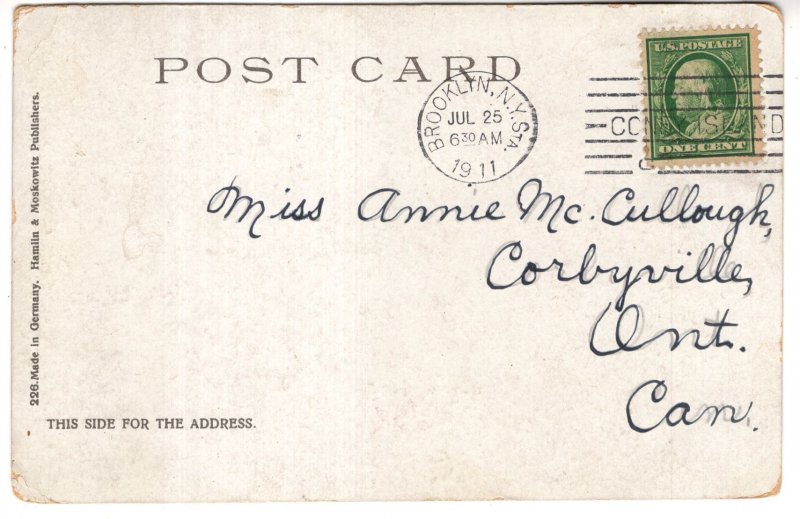 POST CARD
U.S. POSTAGE
ONE CENT
BROOKLYN, N.Y. STA.
JUL 25
6 30 AM
1911
Miss Annie Mc. Cullough,
Corbyville,
Ont.
Can.
226. Made in Germany. Hamlin & Moskowitz Publishers.
THIS SIDE FOR THE ADDRESS.